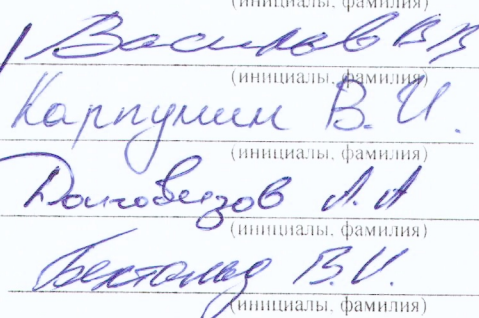 (инициалы, фамилия)
Васильев В В
(инициалы, фамилия)
Карпунин В. И.
(инициалы, фамилия)
А. А
(инициалы, фамилия)
Бектольд В. И.
(инициалы, фамилия)